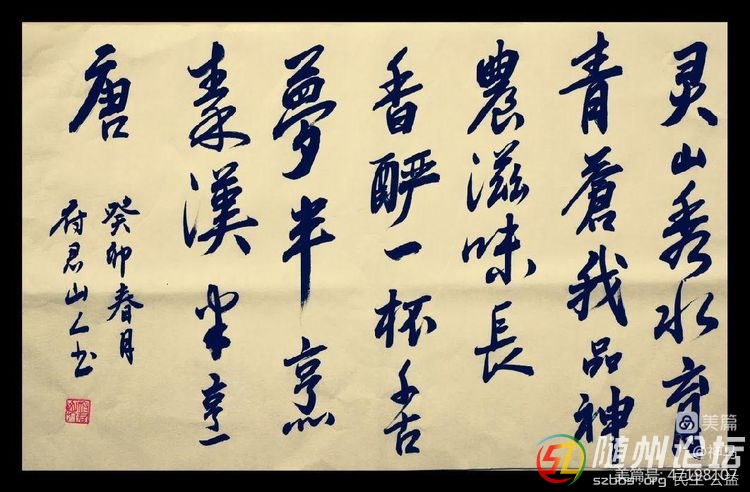 灵山秀水育
青蒼我品神
農滋味長
香酽一杯千古
夢半烹
秦漢半烹
唐
癸卯春月
府君山人书
美篇
随州论坛
美篇号: 47198107
szbbs.org 民生 公益